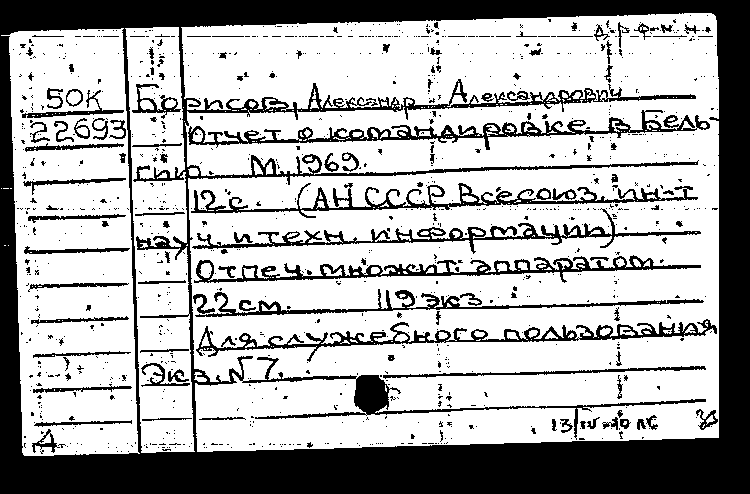 50К Борисов, Александр Александрович
22693 Отчет о командировке в Бель-
гию. М., 1969.
12 с. (АН СССР Всесоюз. ин-т
науч. и техн. информации).
Отпеч. множит. аппаратом.
22 см. 119 экз.
Для служебного пользования
Экз. № 7.
13/IV-70 ЛС